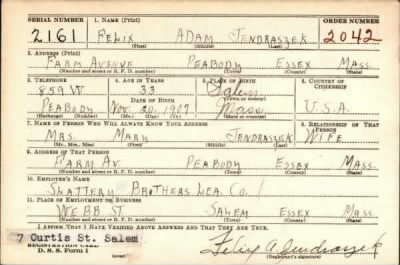 SERIAL NUMBER 1. NAME (Print) ORDER NUMBER
2161 FELIX ADAM JENDRASZEK 2042
(First) (Middle) (Last)
2. ADDRESS (Print)
FARM AVENUE PEABODY ESSEX MASS.
(Number and street or R. F. D. number) (Town) (County) (State)
3. TELEPHONE 4. AGE IN YEARS 5. PLACE OF BIRTH 6. COUNTRY OF CITIZENSHIP
859W 33 Salem
(Town or county)
DATE OF BIRTH
PEABODY NOV. 20, 1907 Mass U.S.A.
(Exchange) (Number) (Mo.) (Day) (Yr.) (State or country)
7. NAME OF PERSON WHO WILL ALWAYS KNOW YOUR ADDRESS 8. RELATIONSHIP OF THAT PERSON
MRS. MARY JENDRASZEK WIFE
(Mr., Mrs., Miss) (First) (Middle) (Last)
9. ADDRESS OF THAT PERSON
FARM AV. PEABODY ESSEX MASS.
(Number and street or R. F. D. number) (Town) (County) (State)
10. EMPLOYER'S NAME
SLATTERY BROTHERS LEA. CO.
11. PLACE OF EMPLOYMENT OR BUSINESS
WEBB ST. SALEM ESSEX MASS.
(Number and street or R. F. D. number) (Town) (County) (State)
I AFFIRM THAT I HAVE VERIFIED ABOVE ANSWERS AND THAT THEY ARE TRUE.
7 Curtis St. Salem
REGISTRATION CARD Felix A Jendraszek
D. S. S. Form 1 (Registrant's signature)
(over)